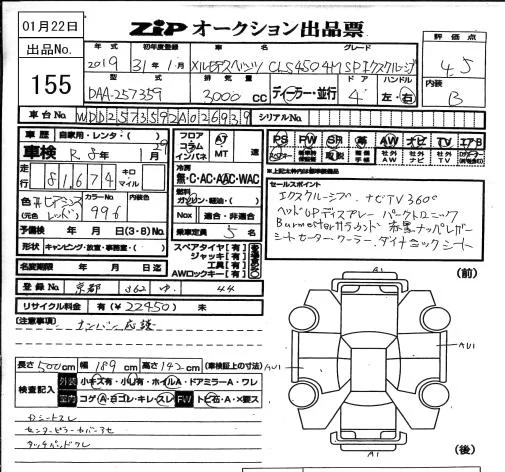 01月22日
ZIP オークション出品票
出品No.
155
年式 初年度登録 車名 グレード
2019 31年1月 メルセデスベンツ CLS450 4M SPエクスクルーシブ
型式 排気量 ドア ハンドル
DAA-257359 3000cc ディーラー・並行 4 左・右
評価点
4.5
内装
B
車台No. WDD2573592A026939 シリアルNo.
車歴 自家用・レンタ・( )
車検 R8年1月29
走行 81,674 キロ マイル
色 (元色 レッド) カラーNo. 996 内装色
予備検 年 月 日(3・8)No.
形状 キャンピング・放室・事務室・( )
名変期限 年 月 日迄
フロア コラム インパネ AT MT 速
冷房
無・C・AC・AAC・WAC
燃料
ガソリン・軽油・( )
Nox 適合・非適合
乗車定員 5名
スペアタイヤ[有]
ジャッキ[有]
工具[有]
AWロックキー[有]
PS PW SR 革 AW ナビ TV エアB
取説 記録簿 社外AW 社外ナビ 社外TV
セールスポイント
エクスクルーシブ ナビTV 360°
ヘッドUPディスプレー パークトロニック
Burmesterサラウンド 赤黒ナッパレザー
シートヒーター・クーラー、ダイナミックシート
登録No. 京都 362 ゆ 44
リサイクル料金 有(¥22450) 未
[注意事項]
ナンバー応談
(前)
A1
AU1
AU1
A1
(後)
長さ 500cm 幅 189cm 高さ 142cm (車検証上の寸法)
検査記入 外装 小キズ有・小凹有・ホイルA・ドアミラーA・ワレ
室内 コゲA・ヨゴレ・キレ・スレ FW トビ石・A・×要ス
Dシートスレ
センターピラーカバーアセ